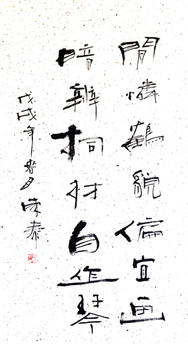 閒憐鶴貌偏宜畫
暗辨桐材自作琴
戊戌年